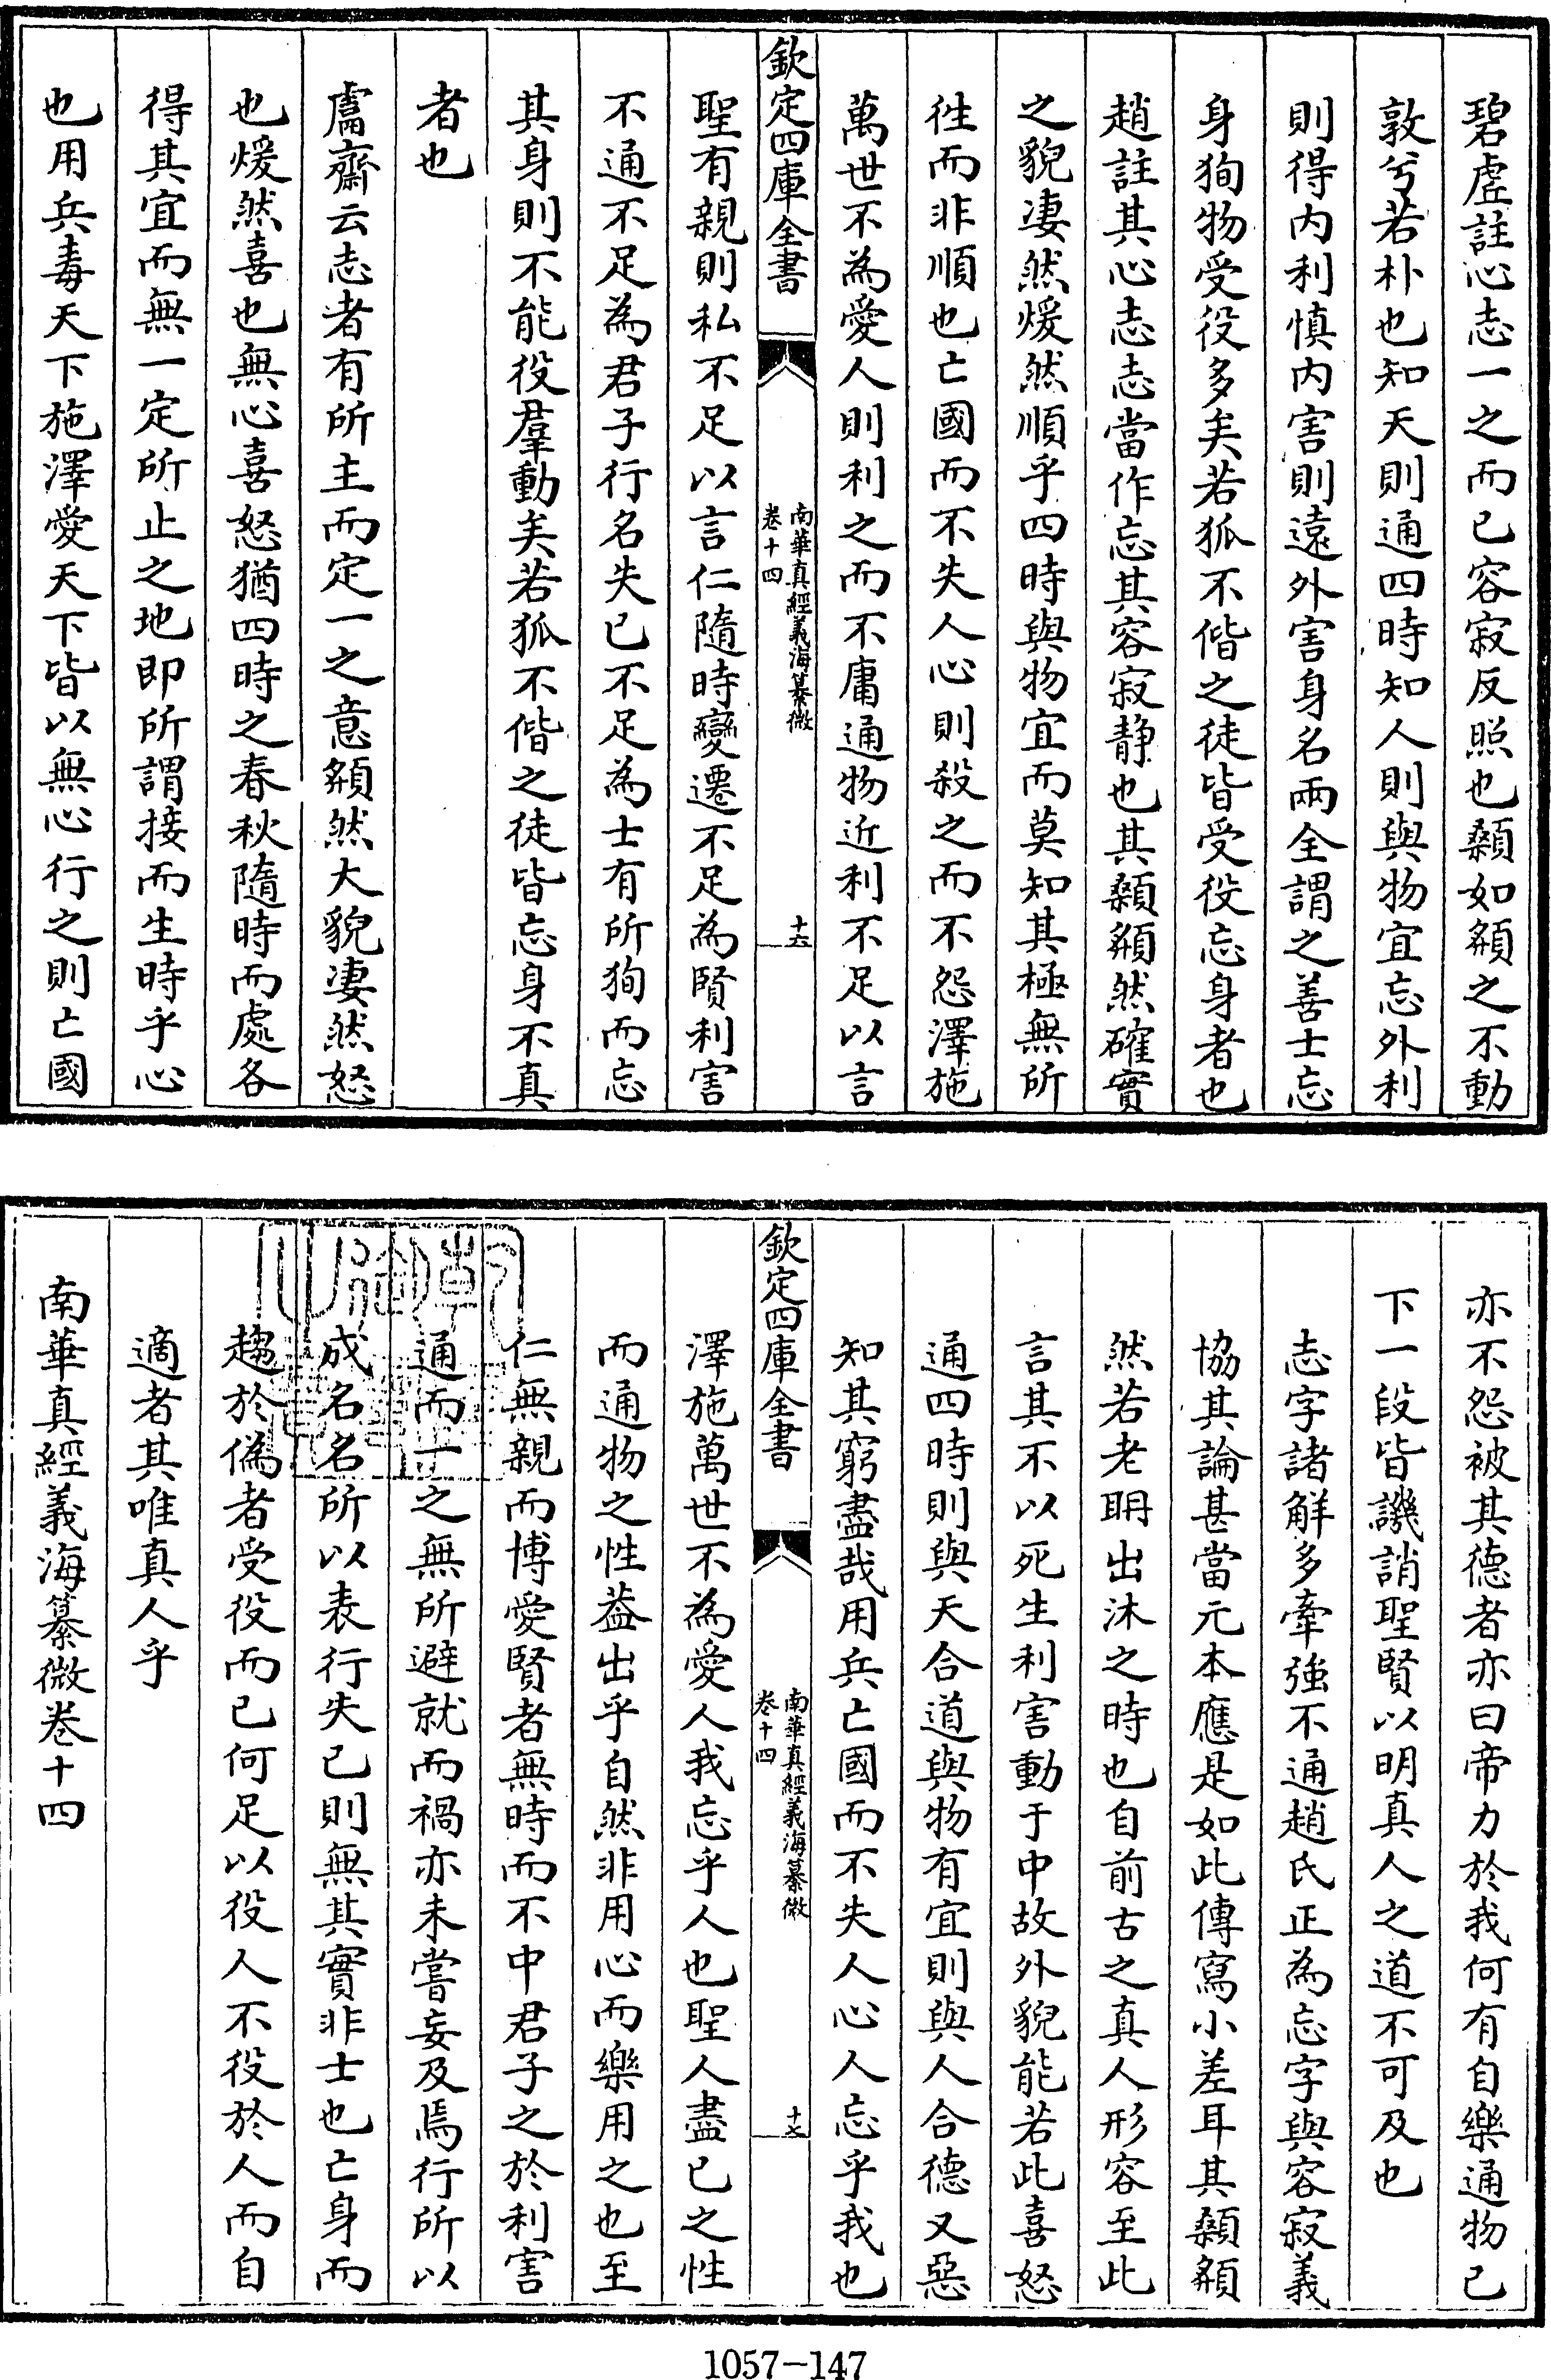 碧虚註心志一之而已容寂反照也顙如頯之不動
敦兮若朴也知天則通四時知人則與物宜忘外利
則得内利慎内害則遠外害身名兩全謂之善士忘
身狥物受役多矣若狐不偕之徒皆受役忘身者也
趙註其心志志當作忘其容寂静也其顙頯然確實
之貌凄然煖然順乎四時與物宜而莫知其極無所
徃而非順也亡國而不失人心則殺之而不怨澤施
萬世不為愛人則利之而不庸通物近利不足以言
欽定四庫全書
南華真經義海纂微
卷十四
十六
聖有親則私不足以言仁隨時變遷不足為賢利害
不通不足為君子行名失已不足為士有所狥而忘
其身則不能役羣動矣若狐不偕之徒皆忘身不真
者也
鬳齋云志者有所主而定一之意頯然大貌凄然怒
也煖然喜也無心喜怒猶四時之春秋隨時而處各
得其宜而無一定所止之地即所謂接而生時乎心
也用兵毒天下施澤愛天下皆以無心行之則亡國
亦不怨被其德者亦曰帝力於我何有自樂通物已
下一段皆譏誚聖賢以明真人之道不可及也
志字諸解多牽強不通趙氏正為忘字與容寂義
協其論甚當元本應是如此傳寫小差耳其顙頯
然若老聃出沐之時也自前古之真人形容至此
言其不以死生利害動于中故外貌能若此喜怒
通四時則與天合道與物有宜則與人合德又惡
知其窮盡哉用兵亡國而不失人心人忘乎我也
欽定四庫全書
南華真經義海纂微
卷十四
十七
澤施萬世不為愛人我忘乎人也聖人盡已之性
而通物之性葢出乎自然非用心而樂用之也至
仁無親而博愛賢者無時而不中君子之於利害
通而一之無所避就而禍亦未嘗妄及焉行所以
成名名所以表行失已則無其實非士也亡身而
趨於偽者受役而已何足以役人不役於人而自
適者其唯真人乎
南華真經義海纂微卷十四
1057-147